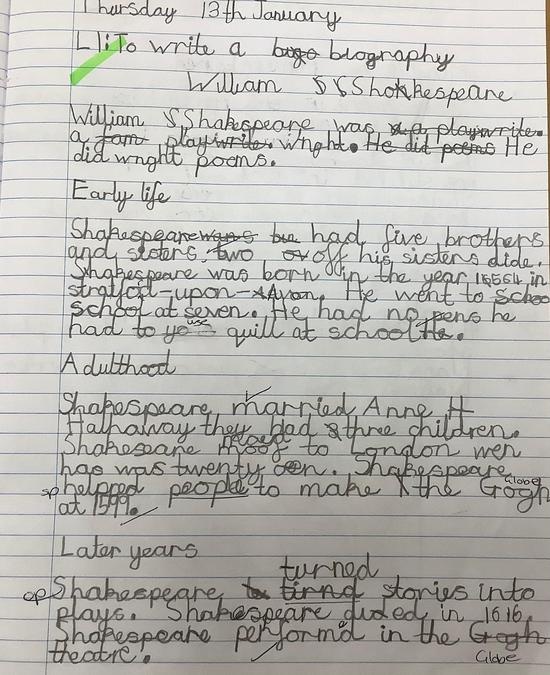 Thursday 13th January
LI: To write a bugo biography
William S S Shakespeare
William S Shakespeare was a playwrite.
a fam playwrite. wright. He did poems He
did wright poems.
Early life
Shakespeare wans had five brothers
and sisters two ov off his sisters dide.
Shakespeare was born in the year 15564 in
stratfod-upon-Avon. He went to Schoo
School at seven. He had no pens he
had to yo use quill at school He.
Adulthood
Shakespeare married Anne H
Hathaway they had three children.
Shakespeare moved to London wen
has was twenty oen. Shakespeare
sp helpped people to make the Gogh Globe
at 1599.
Later years
turned
Shakespeare tirnd stories into
plays. Shakespeare dided in 1616.
Shakespeare performd in the Gogh
theatre. Globe